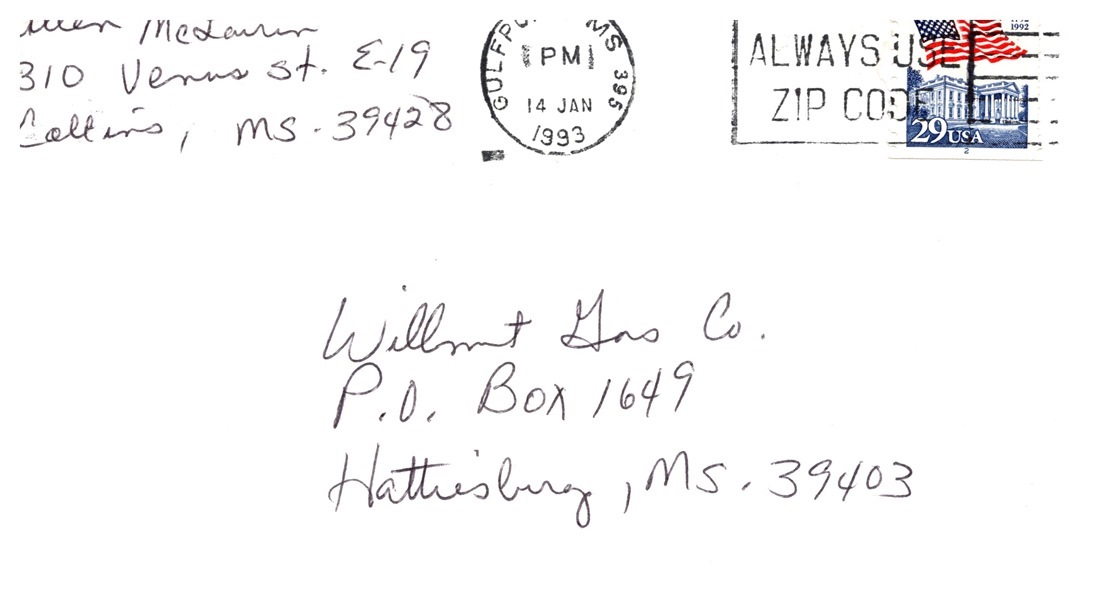 McLaurin
310 Venus St. E-19
Collins, MS. 39428
GULFPO MS 395
PM
14 JAN
1993
ALWAYS USE
ZIP CODE
1992
29 USA
2
Willmut Gas Co.
P.O. Box 1649
Hattiesburg, MS. 39403